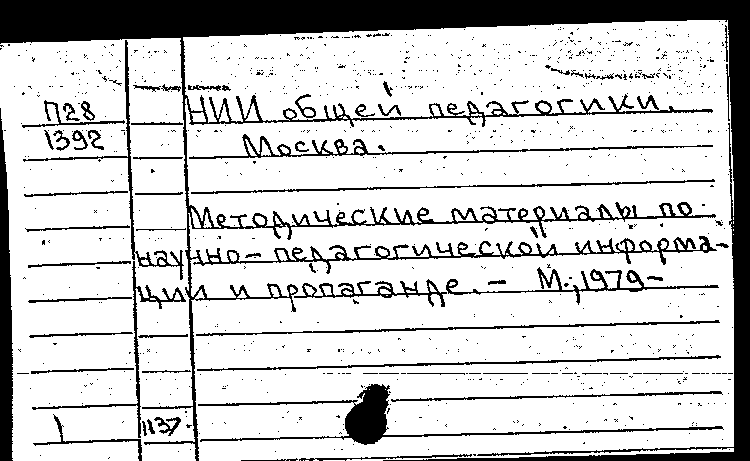 П28
1392
НИИ общей педагогики.
Москва.
Методические материалы по
научно-педагогической информа-
ции и пропаганде. - М., 1979-
1 1137.